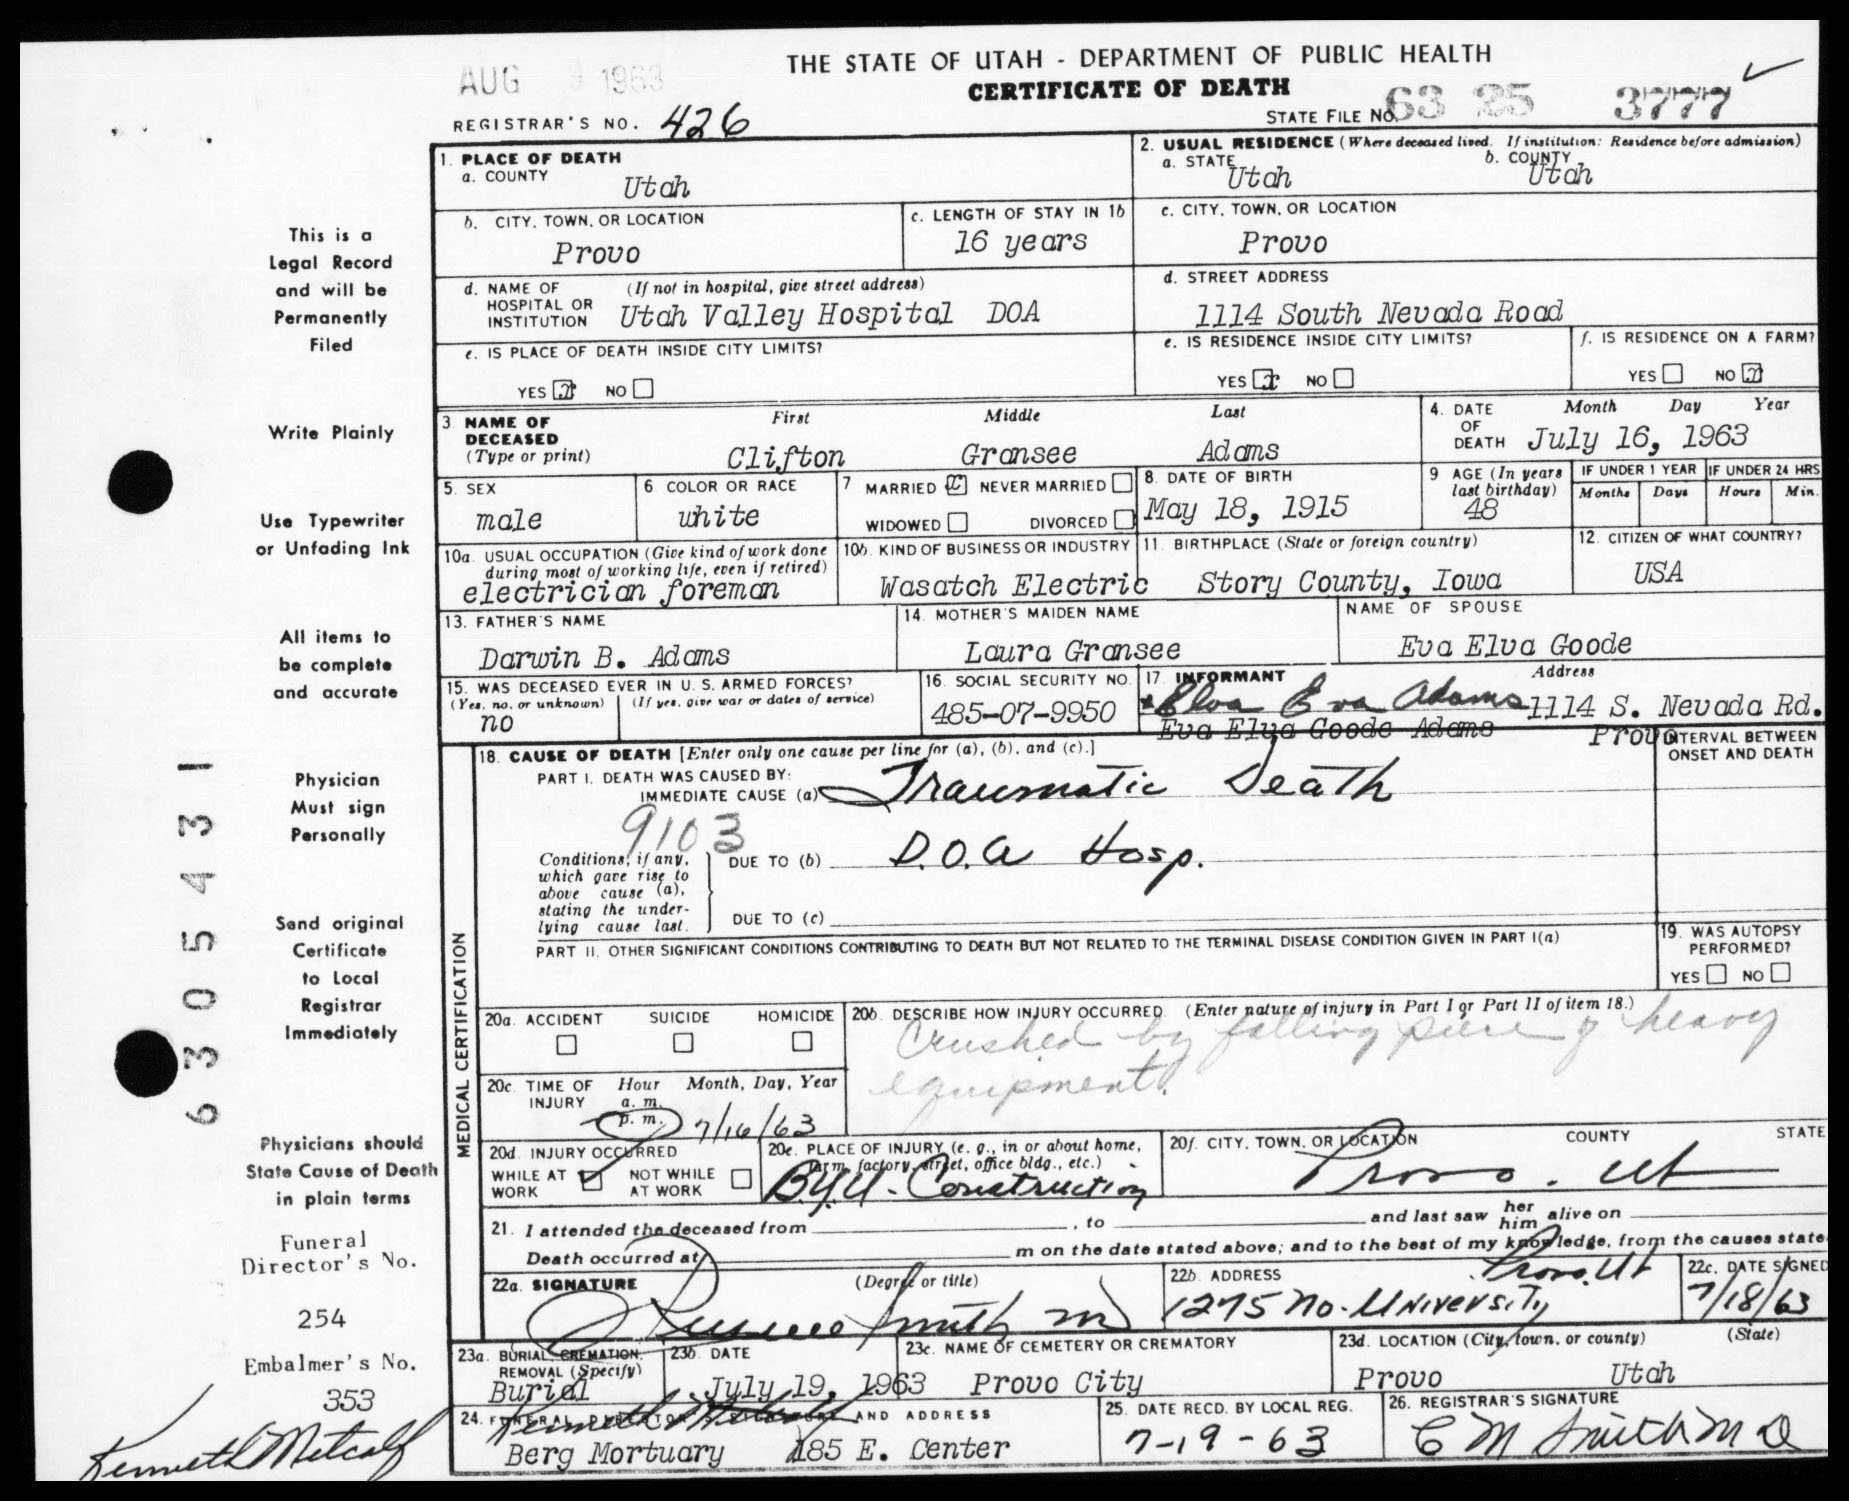 THE STATE OF UTAH - DEPARTMENT OF PUBLIC HEALTH
AUG 9 1963
CERTIFICATE OF DEATH
REGISTRAR'S NO. 426
STATE FILE NO. 63 25 3777
1. PLACE OF DEATH
a. COUNTY
Utah
2. USUAL RESIDENCE (Where deceased lived. If institution: Residence before admission)
a. STATE b. COUNTY
Utah Utah
b. CITY, TOWN, OR LOCATION
Provo
c. LENGTH OF STAY IN 1b
16 years
c. CITY, TOWN, OR LOCATION
Provo
d. NAME OF (If not in hospital, give street address)
HOSPITAL OR
INSTITUTION Utah Valley Hospital DOA
d. STREET ADDRESS
1114 South Nevada Road
e. IS PLACE OF DEATH INSIDE CITY LIMITS?
YES x NO
e. IS RESIDENCE INSIDE CITY LIMITS?
YES x NO
f. IS RESIDENCE ON A FARM?
YES NO x
3. NAME OF First Middle Last
DECEASED
(Type or print) Clifton Gransee Adams
4. DATE Month Day Year
OF
DEATH July 16, 1963
5. SEX
male
6 COLOR OR RACE
white
7 MARRIED x NEVER MARRIED
WIDOWED DIVORCED
8. DATE OF BIRTH
May 18, 1915
9 AGE (In years
last birthday)
48
IF UNDER 1 YEAR IF UNDER 24 HRS
Months Days Hours Min.
10a. USUAL OCCUPATION (Give kind of work done
during most of working life, even if retired)
electrician foreman
10b. KIND OF BUSINESS OR INDUSTRY
Wasatch Electric
11. BIRTHPLACE (State or foreign country)
Story County, Iowa
12. CITIZEN OF WHAT COUNTRY?
USA
13. FATHER'S NAME
Darwin B. Adams
14. MOTHER'S MAIDEN NAME
Laura Gransee
NAME OF SPOUSE
Eva Elva Goode
15. WAS DECEASED EVER IN U.S. ARMED FORCES?
(Yes, no, or unknown) (If yes, give war or dates of service)
no
16. SOCIAL SECURITY NO.
485-07-9950
17 INFORMANT Address
Elva Eva Adams 1114 S. Nevada Rd.
Eva Elva Goode Adams Provo
18. CAUSE OF DEATH [Enter only one cause per line for (a), (b), and (c).]
INTERVAL BETWEEN
ONSET AND DEATH
PART I. DEATH WAS CAUSED BY:
IMMEDIATE CAUSE (a) Traumatic Death
9103
Conditions, if any,
which gave rise to
above cause (a),
stating the under-
lying cause last.
DUE TO (b) D.O.A Hosp.
DUE TO (c)
PART II. OTHER SIGNIFICANT CONDITIONS CONTRIBUTING TO DEATH BUT NOT RELATED TO THE TERMINAL DISEASE CONDITION GIVEN IN PART I(a)
19. WAS AUTOPSY
PERFORMED?
YES NO
MEDICAL CERTIFICATION
20a. ACCIDENT SUICIDE HOMICIDE
20b. DESCRIBE HOW INJURY OCCURRED. (Enter nature of injury in Part I or Part II of item 18.)
Crushed by falling piece of heavy
equipment.
20c. TIME OF Hour Month, Day, Year
INJURY a. m.
p. m. 7/16/63
20d. INJURY OCCURRED
WHILE AT NOT WHILE
WORK AT WORK
20e. PLACE OF INJURY (e. g., in or about home,
farm, factory, street, office bldg., etc.)
B.Y.U. Construction
20f. CITY, TOWN, OR LOCATION COUNTY STATE
Provo. Ut
21. I attended the deceased from , to and last saw her him alive on
Death occurred at m on the date stated above; and to the best of my knowledge, from the causes state
22a. SIGNATURE (Degree or title)
Smith MD
22b. ADDRESS
Provo, Ut
1275 No. University
22c. DATE SIGNED
7/18/63
23a. BURIAL, CREMATION,
REMOVAL (Specify)
Burial
23b. DATE
July 19, 1963
23c. NAME OF CEMETERY OR CREMATORY
Provo City
23d. LOCATION (City, town, or county) (State)
Provo Utah
24. FUNERAL DIRECTOR'S SIGNATURE AND ADDRESS
Berg Mortuary 185 E. Center
25. DATE RECD. BY LOCAL REG.
7-19-63
26. REGISTRAR'S SIGNATURE
C M Smith MD
This is a
Legal Record
and will be
Permanently
Filed
Write Plainly
Use Typewriter
or Unfading Ink
All items to
be complete
and accurate
Physician
Must sign
Personally
Send original
Certificate
to Local
Registrar
Immediately
Physicians should
State Cause of Death
in plain terms
Funeral
Director's No.
254
Embalmer's No.
353
Kenneth Metcalf
6305431